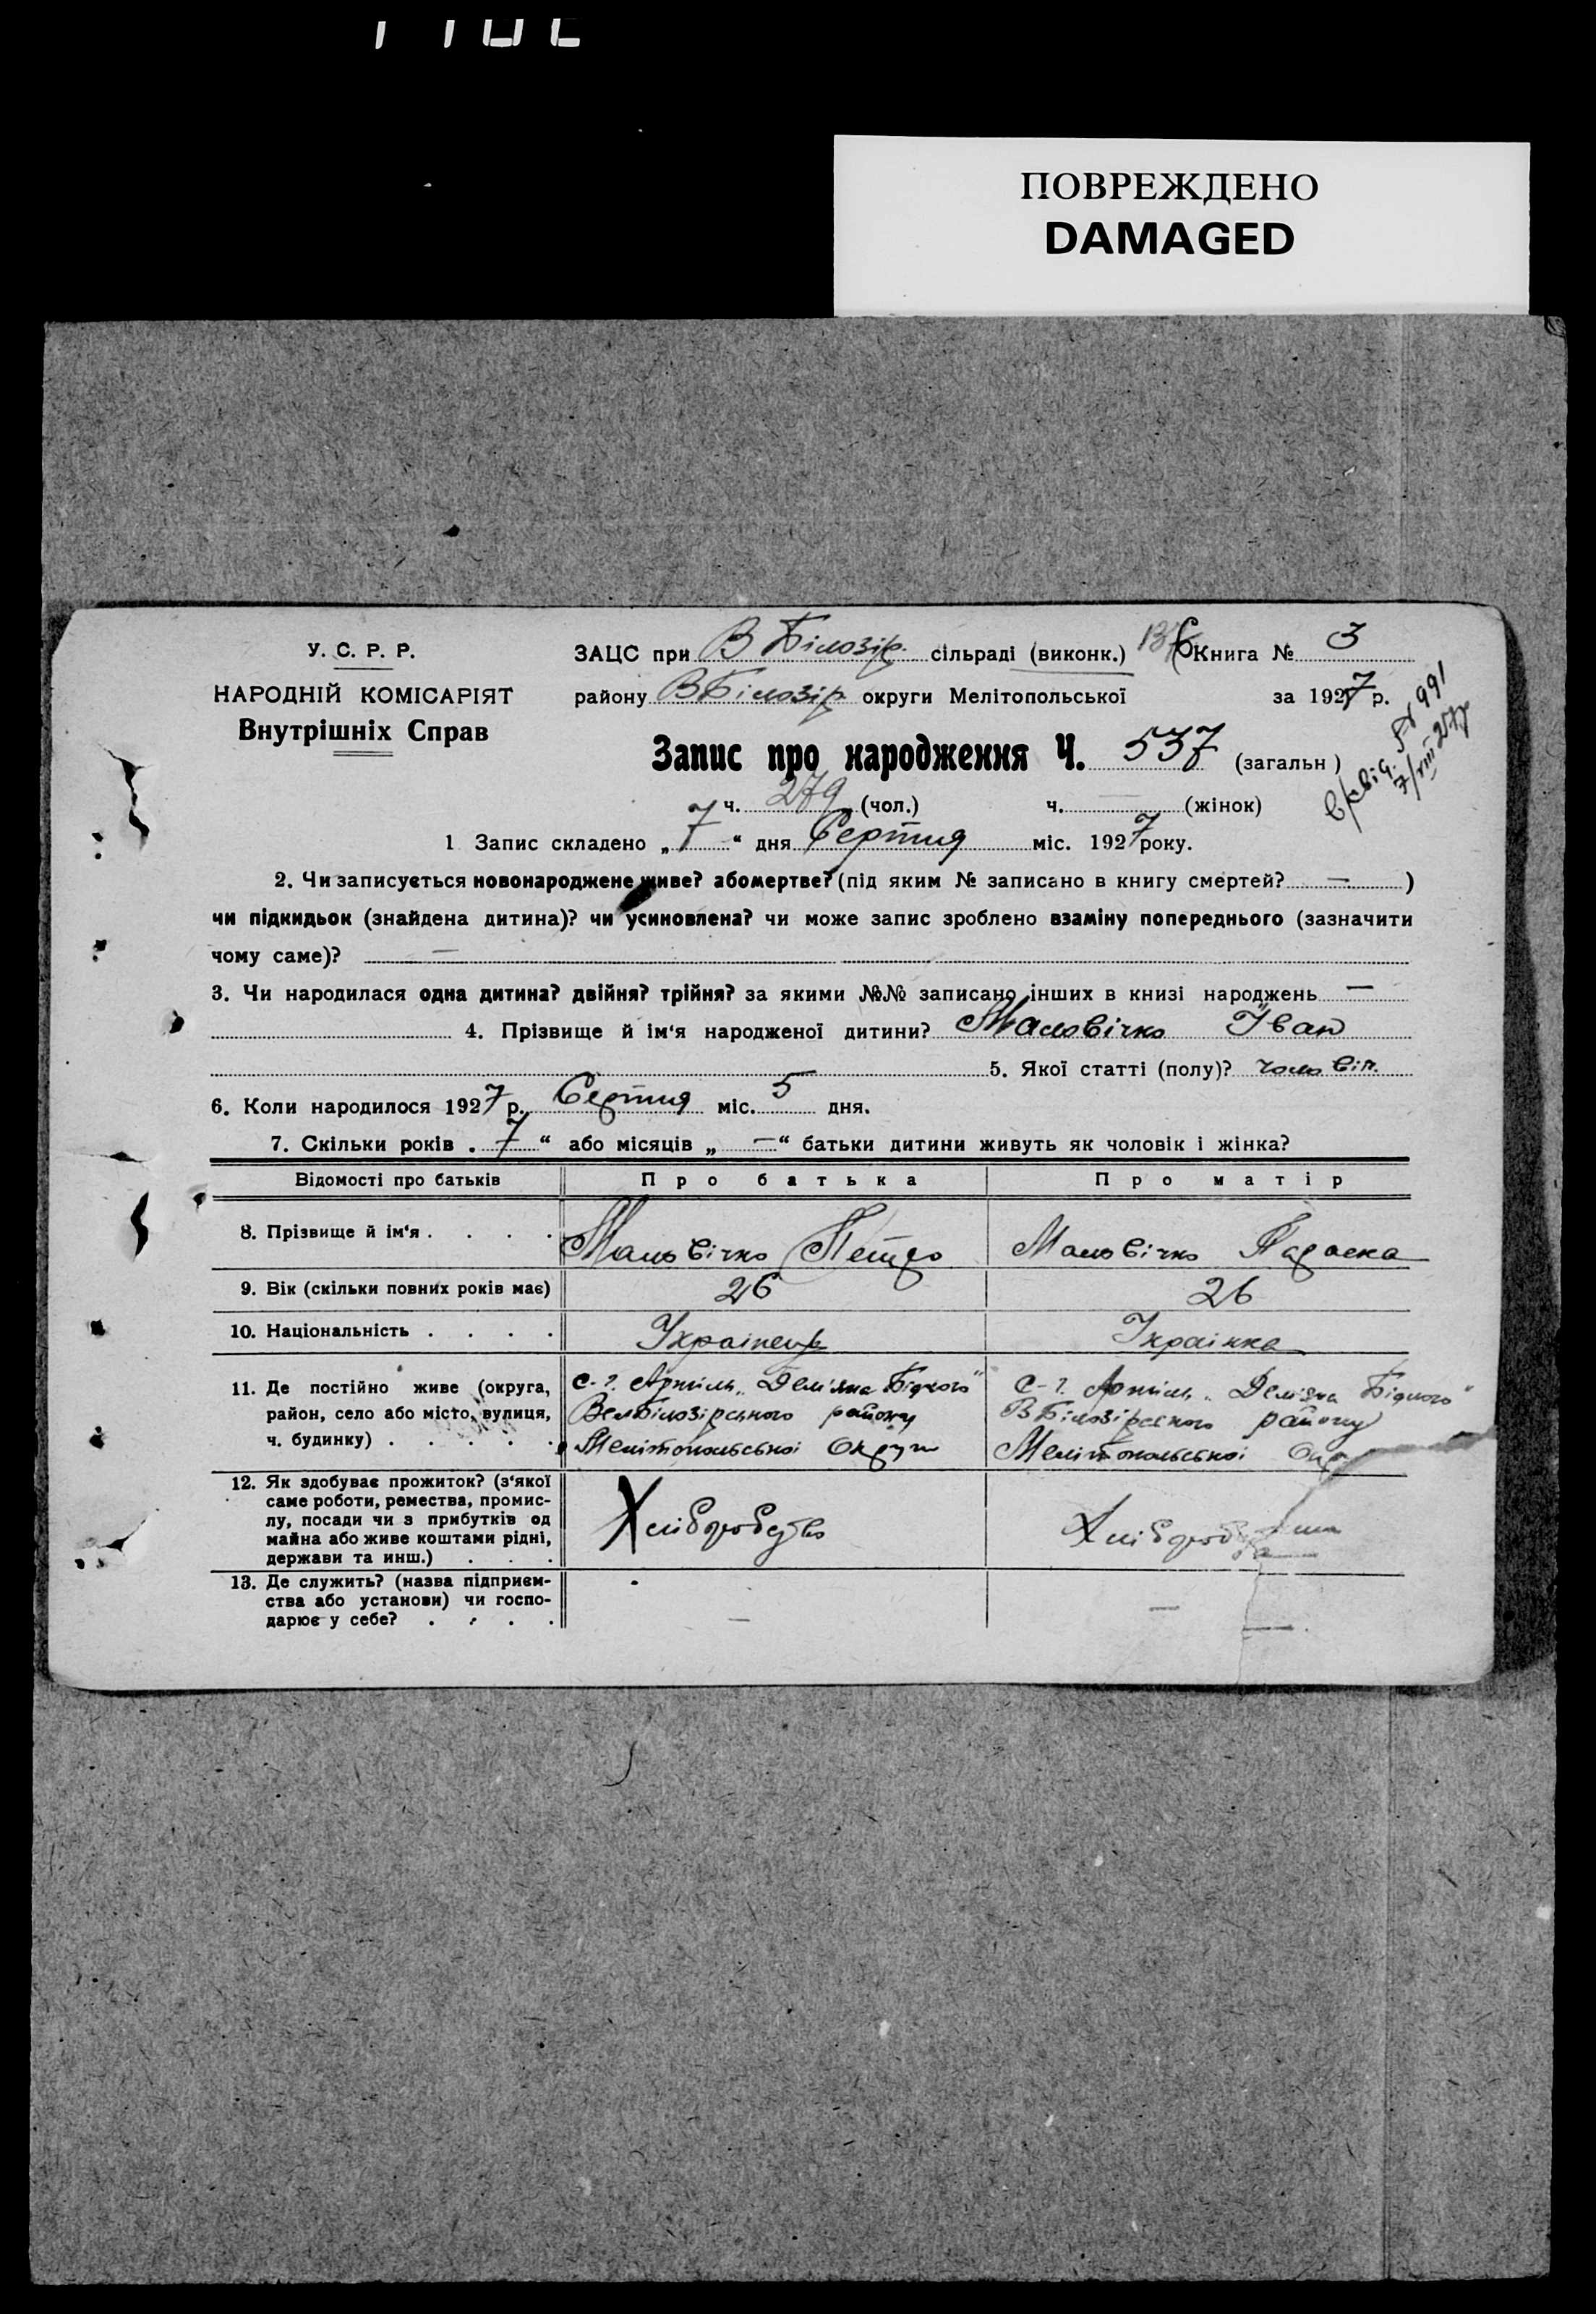 ПОВРЕЖДЕНО
DAMAGED
У. С. Р. Р.
НАРОДНІЙ КОМІСАРІЯТ
Внутрішніх Справ
ЗАЦС при В Білозір. сільраді (виконк.) Книга № 3
району ВБілозір округи Мелітопольської за 1927 р.
Запис про народження Ч. 537 (загальн)
ч. 279 (чол.) ч. — (жінок)
в/свід. № 991
7/VIII 27р
1 Запис складено „ 7 “ дня Серпня міс. 1927 року.
2. Чи записується новонароджене живе? або мертве? (під яким № записано в книгу смертей? — )
чи підкидьок (знайдена дитина)? чи усиновлена? чи може запис зроблено взаміну попереднього (зазначити
чому саме)? —
3. Чи народилася одна дитина? двійня? трійня? за якими №№ записано інших в книзі народжень —
4. Прізвище й ім‘я народженої дитини? Маловічко Іван
5. Якої статті (полу)? чоловіч.
6. Коли народилося 1927 р. Серпня міс. 5 дня.
7. Скільки років . 7 “ або місяців „ — “ батьки дитини живуть як чоловік і жінка?
Відомості про батьків Про батька Про матір
8. Прізвище й ім‘я . . . . Маловічко Петро Маловічко Параска
9. Вік (скільки повних років має) 26 26
10. Національність . . . . Українець Українка
11. Де постійно живе (округа, С-г. Артіль „Дем'яна Бідного“ С-г. Артіль „Дем'яна Бідного“
район, село або місто, вулиця, Велбілозірського району ВБілозірського району
ч. будинку) . . . . . Мелітопольської Округи Мелітопольської Окр
12. Як здобуває прожиток? (з‘якої
саме роботи, ремества, промис-
лу, посади чи з прибутків од Хліборобство Хліборобства
майна або живе коштами рідні,
держави та инш.) . . .
13. Де служить? (назва підприєм-
ства або установи) чи госпо-
дарює у себе? . . . . — —